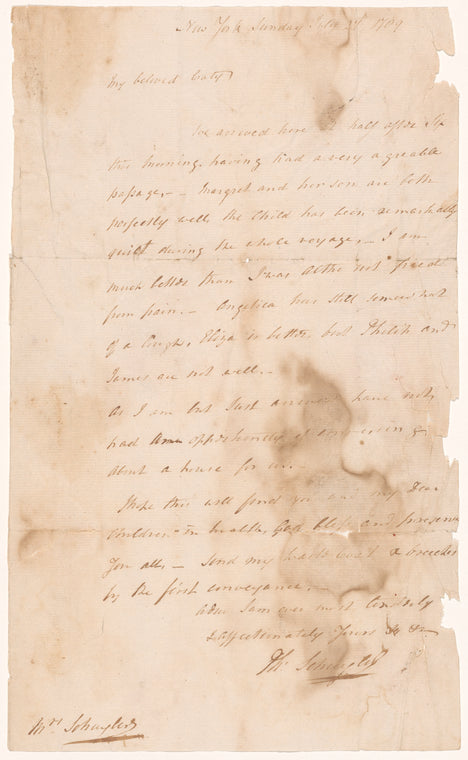 New York Sunday 1789
My beloved Caty
We arrived here at half after Six
this morning, having had a very agreable
passage, – Margret and her son are both
perfectly well, the Child has been remarkably
quiet during the whole voyage, – I am
much better than I was
from pain. – Angelica has still somewhat
of a Cough, Eliza is better, but Philip and
James are not well. –
As I am but Just arrived have not
had an opportunity of conversing
about a house for us. –
I hope this will find you and my Dear
Children in health, God bless and preserve
You all, – Send my coat & breeches
by the first conveyance, –
adieu I am ever most tenderly
& affectionately Yours &c &c
Ph: Schuyler
Mrs Schuyler